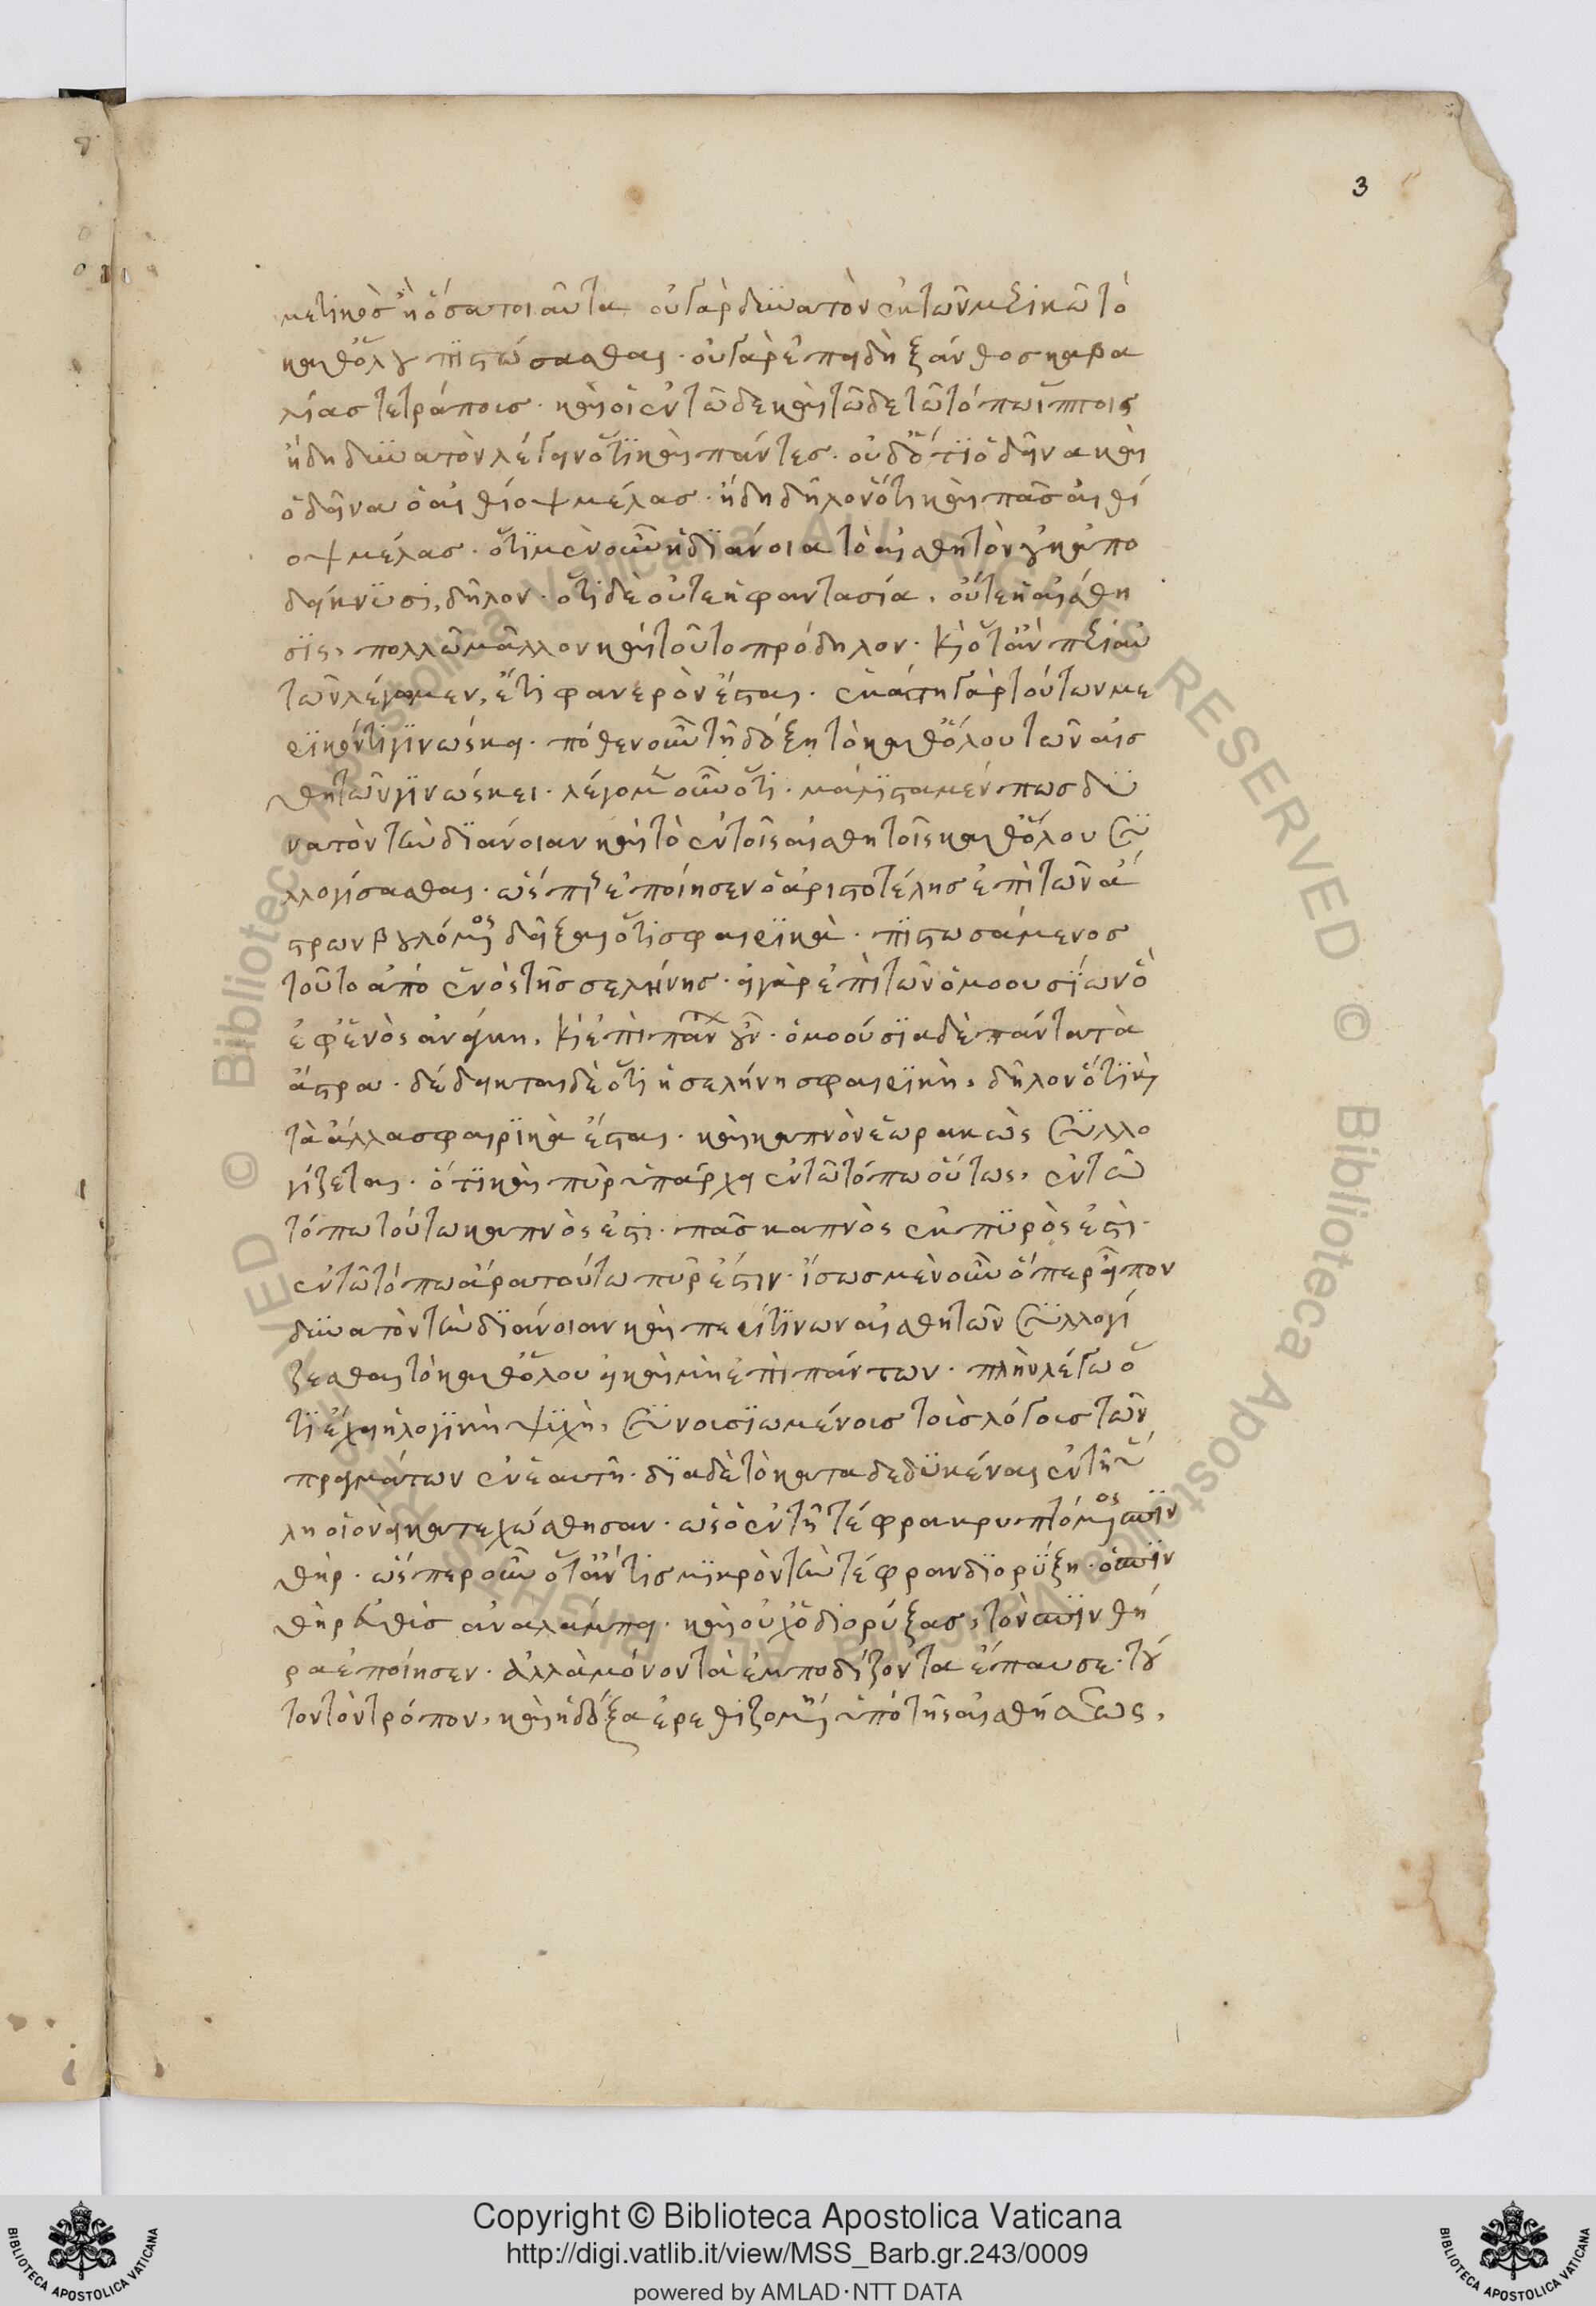 3
μετικὸς ἢ ὅσα τοιαῦτα οὐ γὰρ δυνατὸν ἐκ τῶν μερικῶν τὸ
καθόλου πιστώσασθαι · οὐ γὰρ ἐπειδὴ ξάνθος καὶ βα
λίας τετράποις · καὶ οἱ ἐν τῶδε καὶ τῶδε τῶ τόπω ἵπποις
ἤδη δυνατὸν λέγειν ὅτι καὶ πάντες · οὐδ' ὅτι ὁ δεῖνα καὶ
ὁ δεῖνα ὁ αἰθίοψ μέλας · ἤδη δῆλον ὅτι καὶ πᾶς αἰθί
οψ μέλας · ὅτι μὲν οὖν ἡ διάνοια τὸ αἰσθητὸν οὐκ ἀπο
δείκνυσι, δῆλον · ὅτι δὲ οὔτε ἡ φαντασία, οὔτε ἡ αἴσθη
σις, πολλῶ μᾶλλον καὶ τοῦτο πρόδηλον · καὶ ὅταν περὶ αὐ
τῶν λέγωμεν, ἔτι φανερὸν ἔσται · ἑκάστη γὰρ τούτων με
ρικόν τι γινώσκει · πόθεν οὖν τῆ δόξη τὸ καθόλου τῶν αἰσ
θητῶν γινώσκει · λέγομεν οὖν ὅτι · μάλιστα μέν πως δυ
νατὸν τὴν διάνοιαν καὶ τὸ ἐν τοῖς αἰσθητοῖς καθόλου συ
λλογίσασθαι · ὥσπερ ἐποίησεν ὁ ἀριστοτέλης ἐπὶ τῶν ἄ
στρων βουλόμενος δεῖξαι ὅτι σφαιρικὰ · πιστωσάμενος
τοῦτο ἀπὸ ἑνὸς τῆς σελήνης · εἰ γὰρ ἐπὶ τῶν ὁμοουσίων ὃ
ἐφ' ἑνὸς ἀνάγκη, καὶ ἐπὶ πάντων · ὁμοούσια δὲ πάντα τὰ
ἄστρα · δέδεικται δὲ ὅτι ἡ σελήνη σφαιρικὴ, δῆλον ὅτι καὶ
τὰ ἄλλα σφαιρικὰ ἔσται · καὶ καπνὸν ἑωρακὼς συλλο
γίζεται · ὅτι καὶ πῦρ ὑπάρχει ἐν τῶ τόπω οὕτως, ἐν τῶ
τόπω τούτω καπνὸς ἐστι · πᾶς καπνὸς ἐκ πυρὸς ἐστὶ ·
ἐν τῶ τόπω ἄρα τούτω πῦρ ἐστιν · ἴσως μὲν οὖν ὅπερ εἶπον
δυνατὸν τὴν διάνοιαν καὶ περί τινων αἰσθητῶν συλλογί
ζεσθαι τὸ καθόλου εἰ καὶ μὴ ἐπὶ πάντων · πλὴν λέγω ὅ
τι ἔχει ἡ λογικὴ ψυχὴ, συνουσιωμένοις τοὶς λόγοις τῶν
πραγμάτων ἐν ἑαυτῆ · διὰ δὲ τὸ καταδεδυκέναι ἐν τῆ ὕ
λη οἱονεὶ κατεχώσθησαν · ὡς ὁ ἐν τῆ τέφρα κρυπτόμενος σπιν
θήρ · ὥσπερ οὖν ὅταν τις μικρὸν τὴν τέφραν διορύξη · ὁ σπιν
θὴρ εὐθὶς ἀναλάμπει · καὶ οὐχ ὁ διορύξας, τὸν σπινθῆ
ρα ἐποίησεν · ἀλλὰ μόνον τὰ ἐμποδίζοντα ἔπαυσε · τοῦ
τον τὸν τρόπον, καὶ ἡ δόξα ἐρεθιζομένη ὑπὸ τῆς αἰσθήσεως,
Copyright © Biblioteca Apostolica Vaticana
http://digi.vatlib.it/view/MSS_Barb.gr.243/0009
powered by AMLAD·NTT DATA